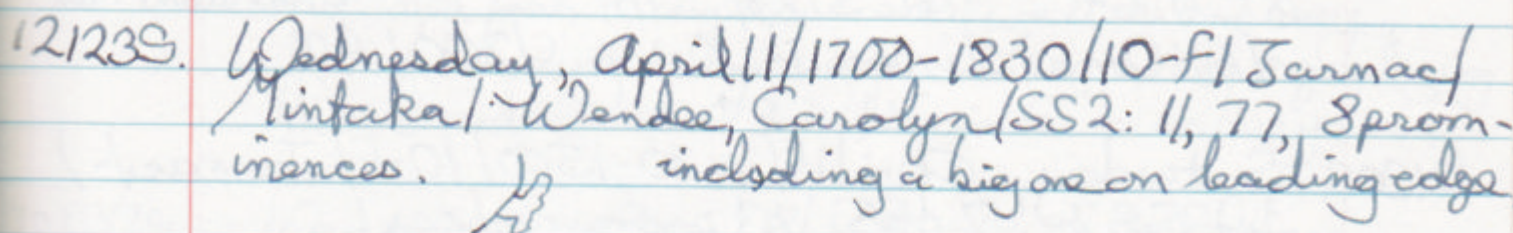 12123S. Wednesday, April 11/1700-1830/10-F/Jarnac/
Mintaka/Wendee, Carolyn/SS2: 11, 77, 8 prom-
inences. including a big one on leading edge